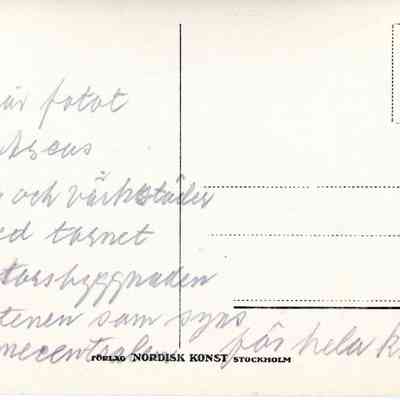 är fotot
och värkstäder
ed tornet
torsbyggnaden
tenen som syns
mecentralen för hela k
FÖRLAG NORDISK KONST STOCKHOLM